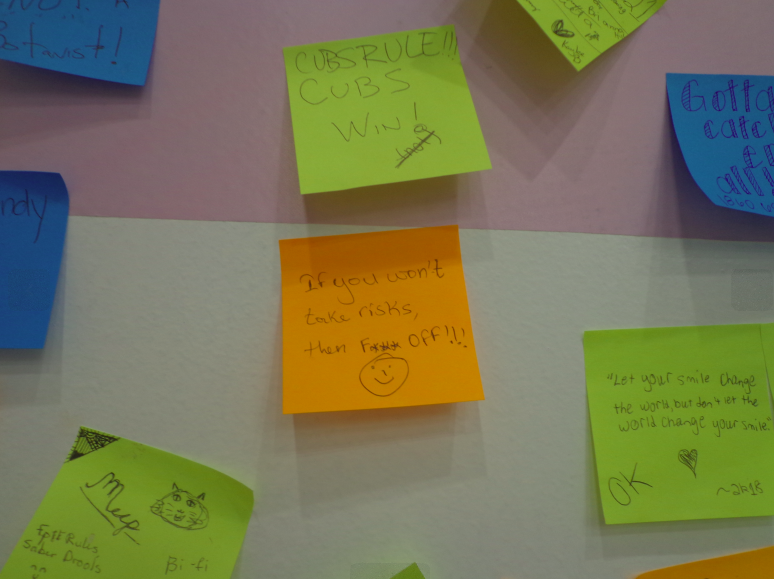 twist!
CUBS RULE!!!
CUBS
WIN!
Gotta
catch
em
all!
ndy
If you won't
take risks,
then F OFF!!!
"Let your smile change
the world, but don't let the
world change your smile."
OK
~2k18
Meep
Rules
Drools
Bi-fi